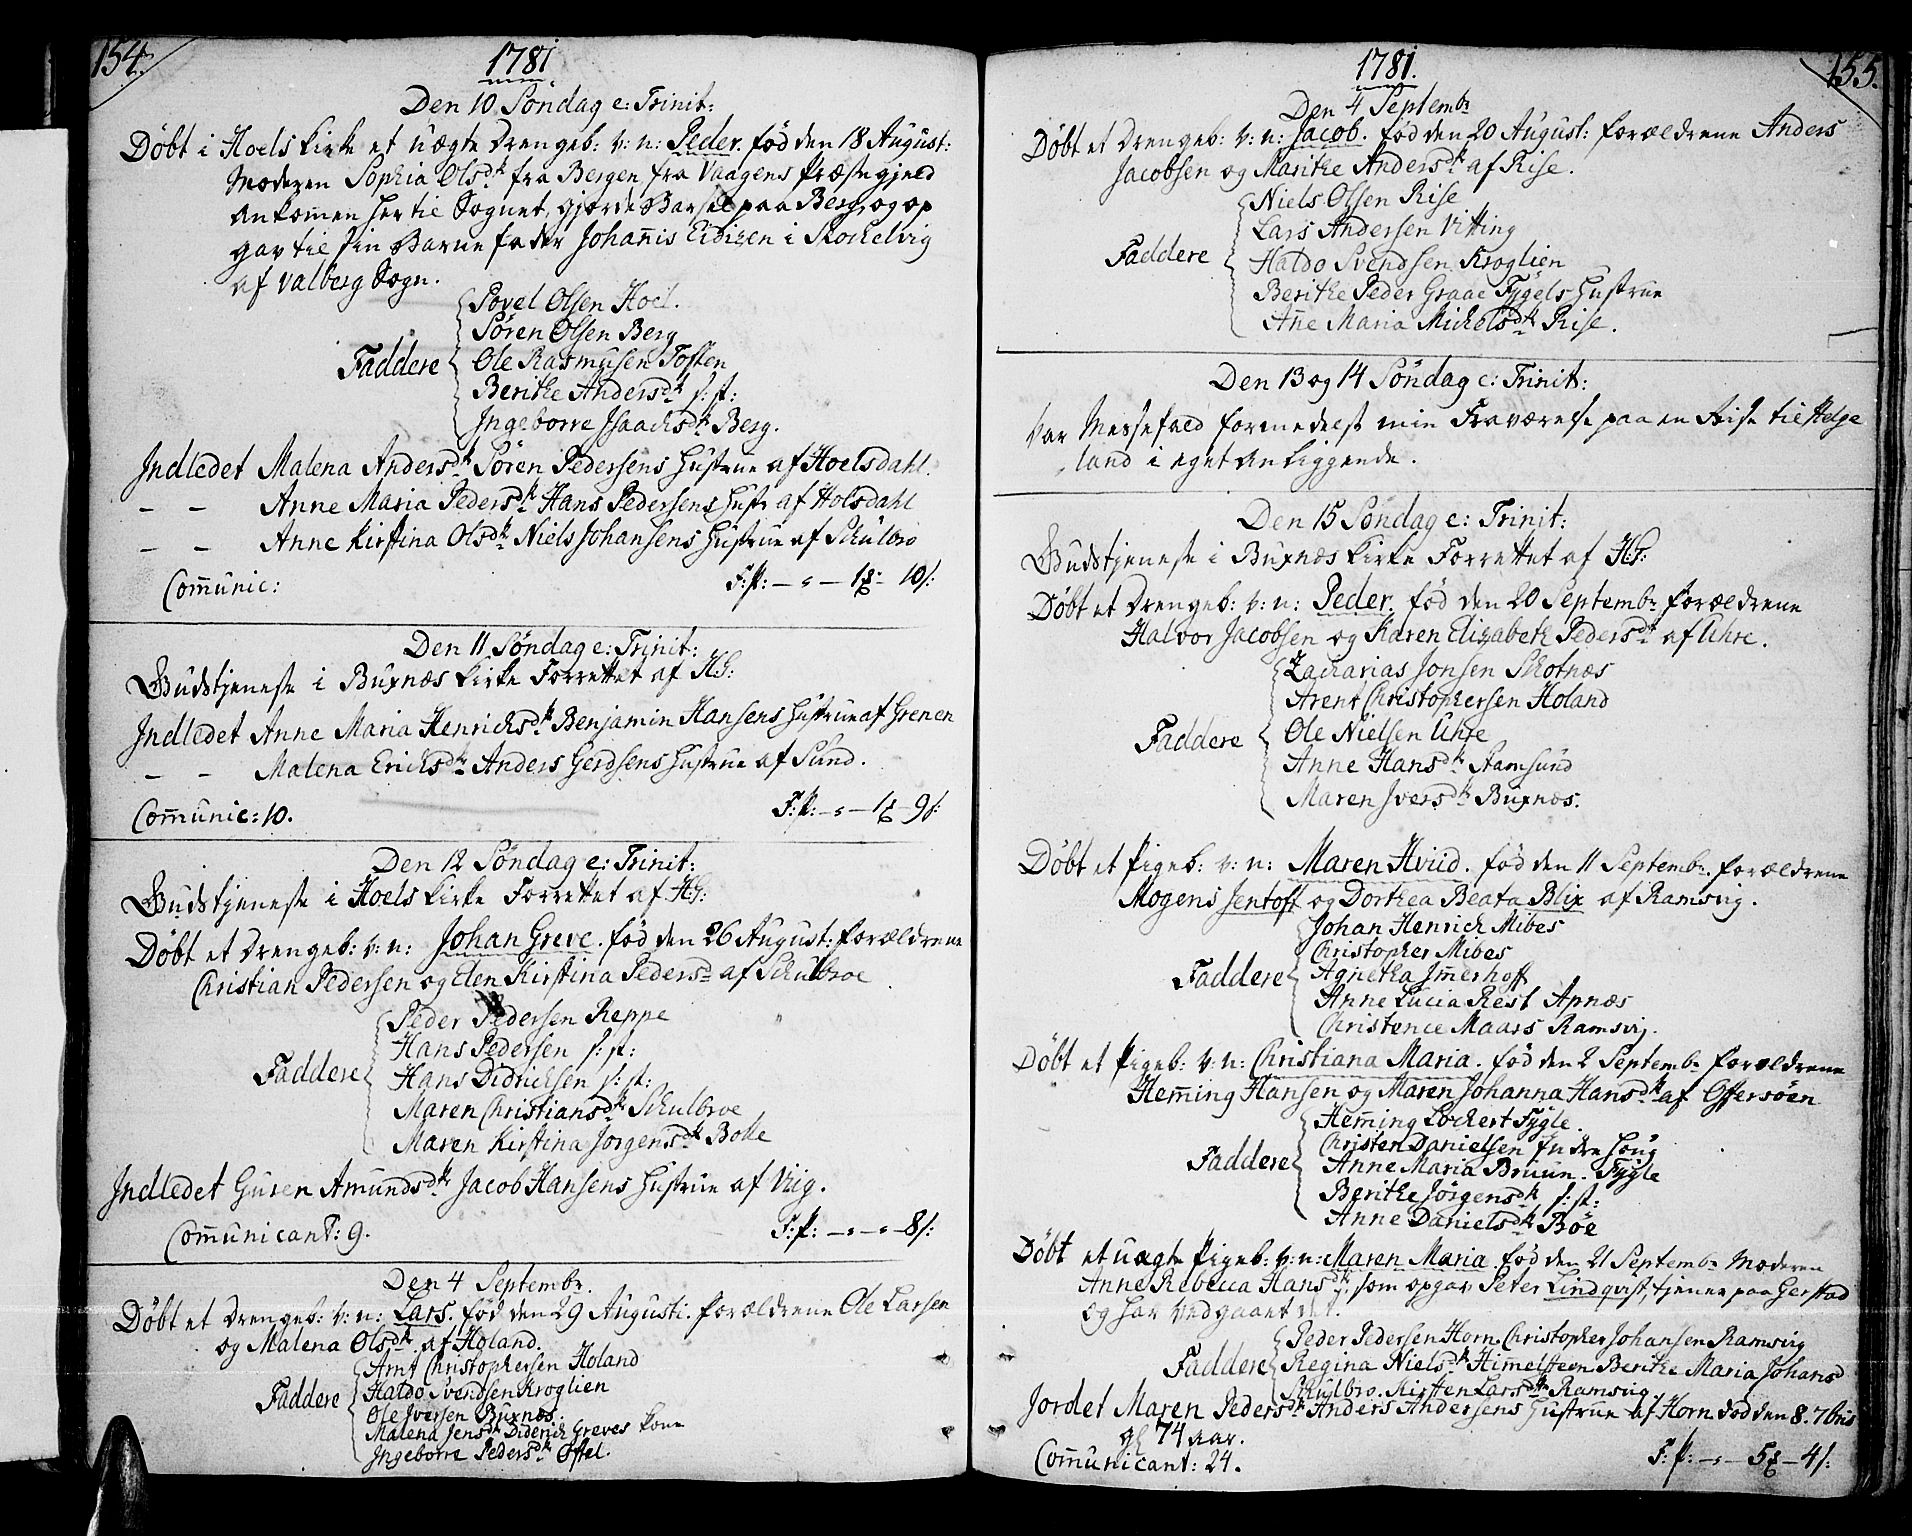 154.
1781
Den 10 Søndag e: Trinit:
Døbt i Hoels Kirke et uægte Drengeb: v: n: Peder. fød den 18 August:
Moderen Sophia Olsdr fra Bergen fra Vaagens Præstegield
ankommen her til Sognet, gjorde Barsel paa Berg, og op
gav til sin Barnefader Johannis Eidisen i Skockelvig
af Valberg Sogn.
Povel Olsen Hoel.
Søren Olsen Berg
Faddere Ole Rasmusen Toften
Berithe Andersdr s: st:
Ingeborre Isaachsdr Berg.
Indledet Malena Andersdr Søren Pedersens Hustrue af Hoelsdahl.
– – Anne Maria Pedersdr Hans Pedersens Hustr af Holsdahl
– – Anne Kirstina Olsdr Niels Johansens Hustrue af Schulbro
Comunic: F: P: – " – 1 – 10 s:
Den 11 Søndag e: Trinit:
Gudstjeneste i Buxnæs Kirke Forrettet af H: G:
Indledet Anne Maria Henrichsdr Benjamin Hansens Hustrue af Grenen
– – Malena Erichsdr Anders Gerdsens Hustrue af Sund.
Comunic: 10. F: P: – " – 1 – 9 s:
Den 12 Søndag e: Trinit:
Gudstjeneste i Hoels Kirke Forrettet af H: G:
Døbt et Drengeb: v: n: Johan Greve. fød den 26 August: Forældrene
Christian Pedersen og Elen Kirstina Pedersdr af Schulbroe
Peder Pedersen Reppe
Hans Pedersen s: st:
Faddere Hans Didrichsen s: st:
Maren Christiansdr Schulbroe
Maren Kirstina Jørgensdr Bolle
Indledet Guren Amundsdr Jacob Hansens Hustrue af Viig.
Comunicant: 9. F: P: – " – " – 8 s:
Den 4 Septembr.
Døbt et Drengeb: v: n: Lars. fød den 29 Augusti. Forældrene Ole Larsen
og Malena Olsdr af Holand.
Arnt Christophersen Holand
Haldo Svendsen Kroglien
Faddere Ole Iversen Buxnæs.
Malena Jensdr Diderich Greves Kone
Ingeborre Pedersdr Østel.
155.
1781.
Den 4 Septembr
Døbt et Drengeb: v: n: Jacob. fød den 20 August: Forældrene Anders
Jacobsen og Marithe Andersdr af Rise.
Niels Olsen Rise
Lars Andersen Vitting
Faddere Haldo Svendsen Kroglien
Berithe Peder Graae Fygels Hustrue
Anne Maria Michelsdr Rise.
Den 13 og 14 Søndag e: Trinit:
Var Messefald formedelst min Fraværelse paa en Reise til Helge
land i eget Anliggende.
Den 15 Søndag e: Trinit:
Gudstjeneste i Buxnæs Kirke Forrettet af H: G:
Døbt et Drengeb: v: n: Peder. fød den 20 Septembr Forældrene
Halvor Jacobsen og Karen Elizabeth Pedersdr af Uhre.
Zacharias Jonsen Skotnæs
Arent Christophersen Holand
Faddere Ole Nielsen Uhre
Anne Hansdr Stamsund
Maren Iversdr Buxnæs.
Døbt et Pigeb: v: n: Maren Hviid. fød den 11 Septembr. Forældrene
Mogens Jentoft og Dorthea Beata Blix af Ramsvig.
Johan Henrich Mibes
Christopher Mibes
Faddere Agnetha Imerhoff
Anne Lucia Rest Apnæs
Christence Maars Ramsvig.
Døbt et Pigeb: v: n: Christiana Maria. fød den 2 Septembr Forældrene
Heming Hansen og Maren Johanna Hansdr af Offersøen
Heming Lochert Fygle.
Christen Danielsen Indre Houg
Faddere Anne Maria Bruun. Fygle
Berithe Jørgensdr s: st:
Anne Danielsdr Bøe
Døbt et uægte Pigeb: v: n: Maren Maria. fød den 21 Septembr Moderen
Anne Rebecca Hansdr, som opgav Peter Lindqvist, tjener paa Gerstad
og har vedgaaet det.
Peder Pedersen Horn. Christopher Johansen Ramsvig
Faddere Regina Nielsdr Himelsteen Berithe Maria Johansd
Schulbro. Kirsten Larsdr Ramsvig.
Jordet Maren Pedersdr Anders Andersens Hustrue af Horn død den 8. 7bris
gl 74 aar.
Comunicant: 24. F: P: – " – 5 – 4 s: